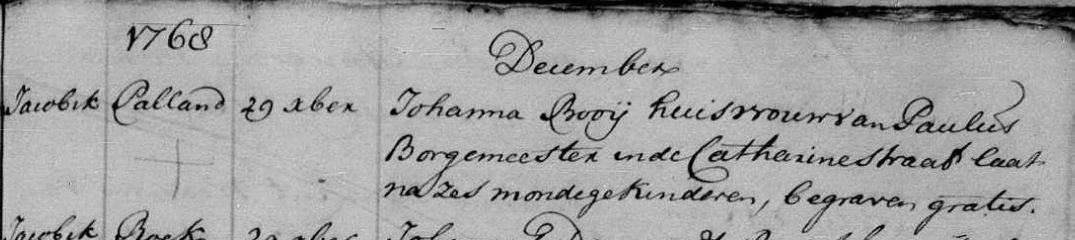 1768
December
Jacobik Palland 29 xber Johanna Rooij huisvrouw van Paulus
Borgemeester in de Catharinestraat laat
na zes mondege kinderen, begraven gratis.
Jacobik 29 xber